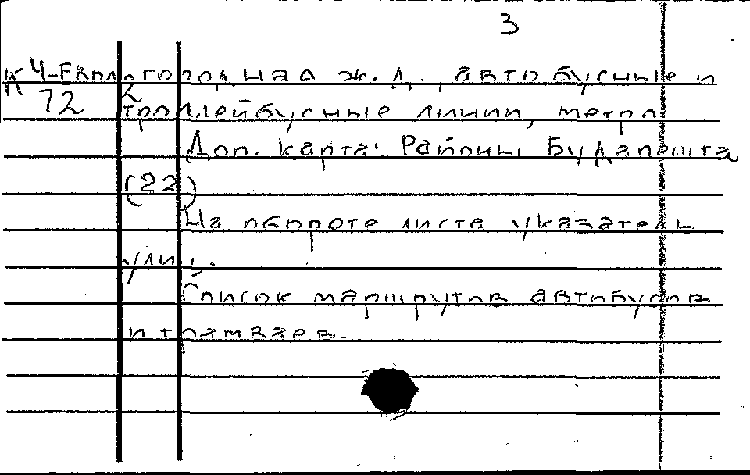 3
К Ч-Европ. городная ж. д., автобусные и
72 троллейбусные линии, метро
Доп. карта: Районы Будапешта
(22)
На обороте листа указатель
улиц.
Список маршрутов автобусов
и трамваев.